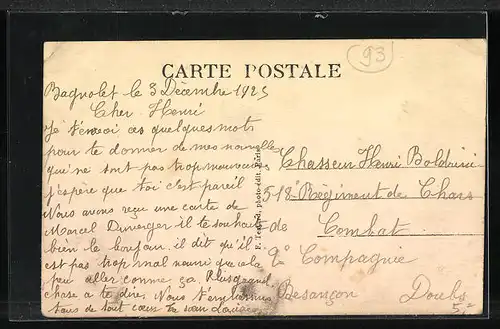 93
CARTE POSTALE
Bagnolet le 3 Décembre 1925
Cher Henri
Je t'envoi ces quelques mots
pour te donner de mes nouvelles
qui ne sont pas trop mauvaises
j'espère que toi c'est pareil
Nous avons reçu une carte de
Marcel il te souhaite
bien le bonjour. il dit qu'il
est pas trop mal nourri que cela
peu aller comme ça. Plus grand
chose a te dire. Nous t'embrassons
tous de tout cœur
photo-édit.
Chasseur Henri
512e Régiment de Chars
de Combat
2e Compagnie
Besançon Doubs